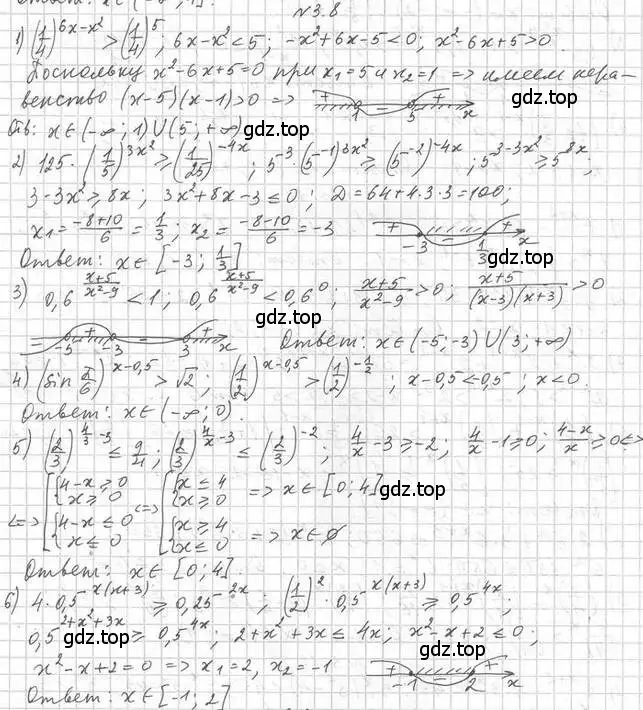 Ответ: x∈(-∞; 1].
№3.8
1) (1/4)^(6x-x²) > (1/4)^5; 6x-x²<5; -x²+6x-5<0; x²-6x+5>0.
Поскольку x²-6x+5=0 при x₁=5 и x₂=1 => имеем нера-
венство (x-5)(x-1)>0 => 1 5 x
Отв: x∈(-∞; 1)∪(5; +∞) gdz.top
2) 125·(1/5)^(3x²) ≥ (1/25)^(-4x); 5³·(5⁻¹)^(3x²) ≥ (5⁻²)^(-4x); 5^(3-3x²) ≥ 5^(8x);
3-3x² ≥ 8x; 3x²+8x-3 ≤ 0; D=64+4·3·3=100;
x₁=(-8+10)/6=1/3; x₂=(-8-10)/6=-3 + -3 - 1/3 + x
Ответ: x∈[-3; 1/3]
3) 0,6^((x+5)/(x²-9)) < 1; 0,6^((x+5)/(x²-9)) < 0,6⁰; (x+5)/(x²-9) > 0; (x+5)/((x-3)(x+3)) > 0
gdz.top
- -5 + -3 - 3 + x Ответ: x∈(-5;-3)∪(3; +∞)
4) (sin π/6)^(x-0,5) > √2; (1/2)^(x-0,5) > (1/2)^(-1/2); x-0,5<-0,5; x<0.
Ответ: x∈(-∞; 0). gdz.top
5) (2/3)^(4/x-3) ≤ 9/4; (2/3)^(4/x-3) ≤ (2/3)^(-2); 4/x-3 ≥ -2; 4/x-1 ≥ 0; (4-x)/x ≥ 0 <=>
<=> [{4-x ≥ 0 x ≥ 0 <=> [{x ≤ 4 x ≥ 0 => x∈[0; 4] gdz.top
{4-x ≤ 0 x ≤ 0 {x ≥ 4 x ≤ 0 => x∈∅
Ответ: x∈[0; 4]
6) 4·0,5^(x(x+3)) ≥ 0,25^(2x); (1/2)²·0,5^(x(x+3)) ≥ 0,5^(4x);
0,5^(2+x²+3x) ≥ 0,5^(4x); 2+x²+3x ≤ 4x; x²-x+2 ≤ 0;
gdz.top
x²-x+2=0 => x₁=2, x₂=-1 + -1 - 2 + x
Ответ: x∈[-1; 2] gdz.top